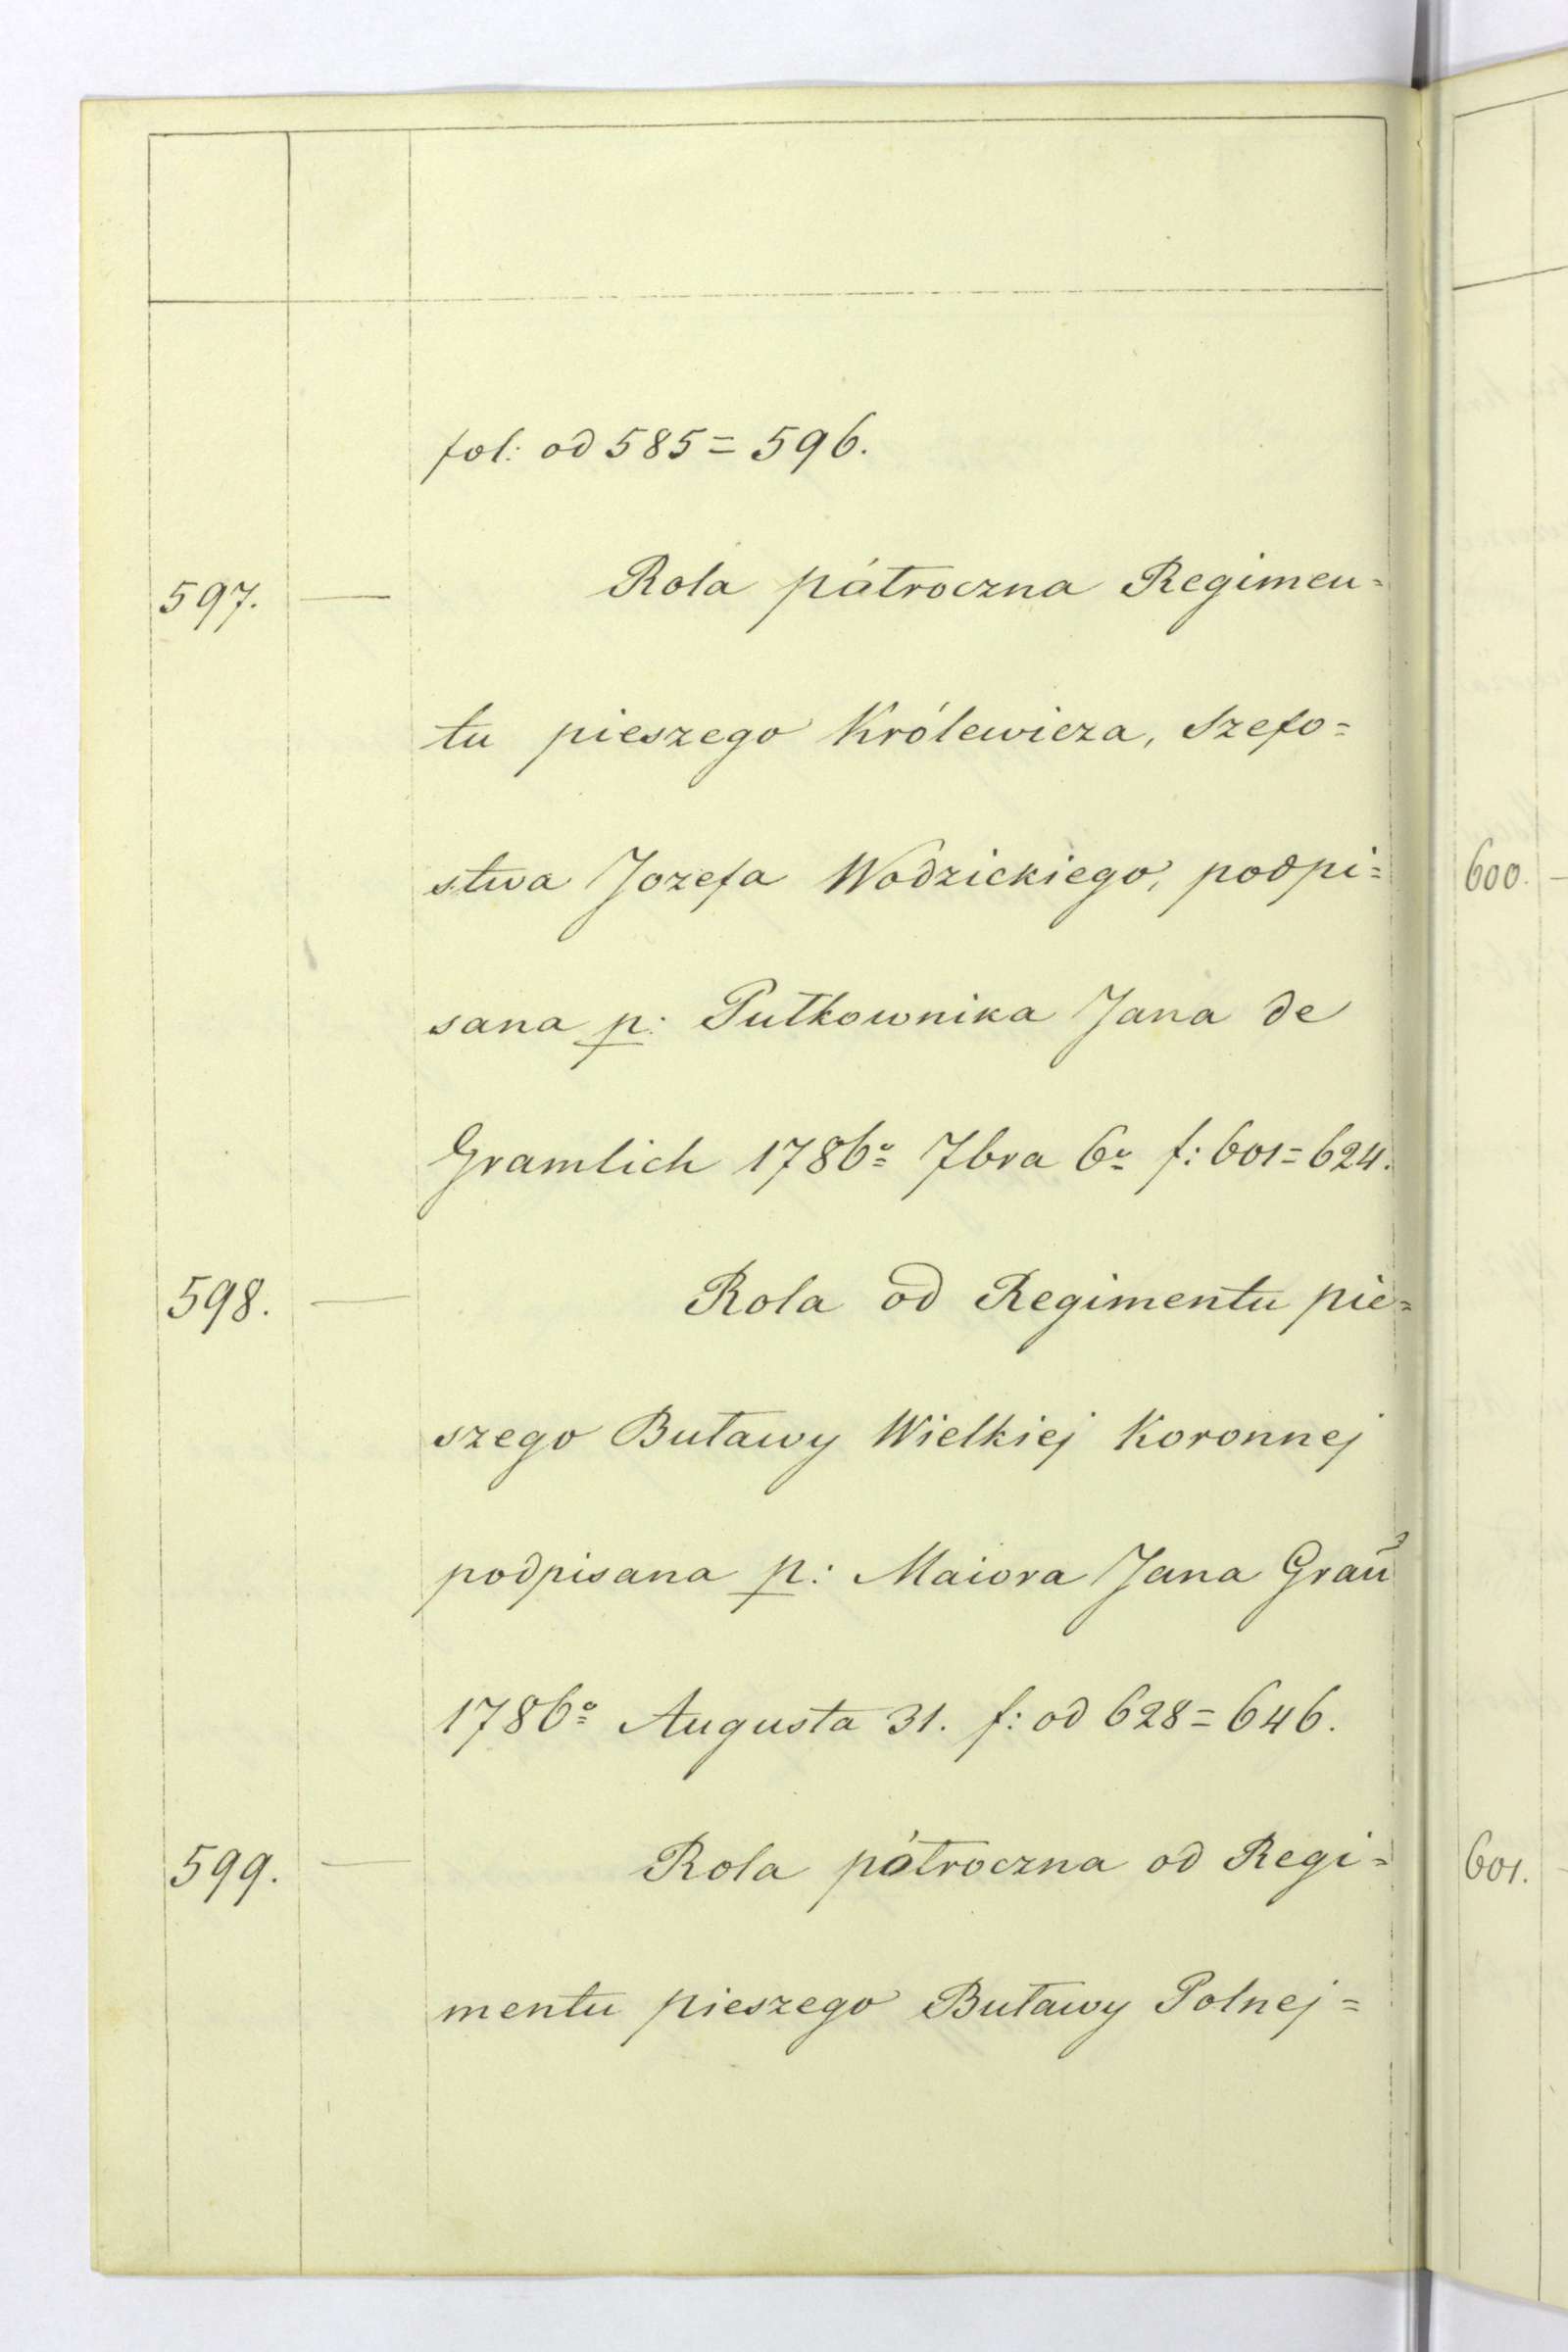 fol: od 585 = 596.
597. — Rola półroczna Regimen=
tu pieszego Królewicza, Szefo=
stwa Jozefa Wodzickiego, podpi=
sana p: Pułkownika Jana de
Gramlich 1786º 7bra 6º f: 601 = 624.
598. — Rola od Regimentu pie=
szego Buławy Wielkiej Koronnej
podpisana p: Maiora Jana Grau
1786º Augusta 31. f: od 628 = 646.
599. — Rola półroczna od Regi=
mentu pieszego Buławy Polnej =
600.
601.